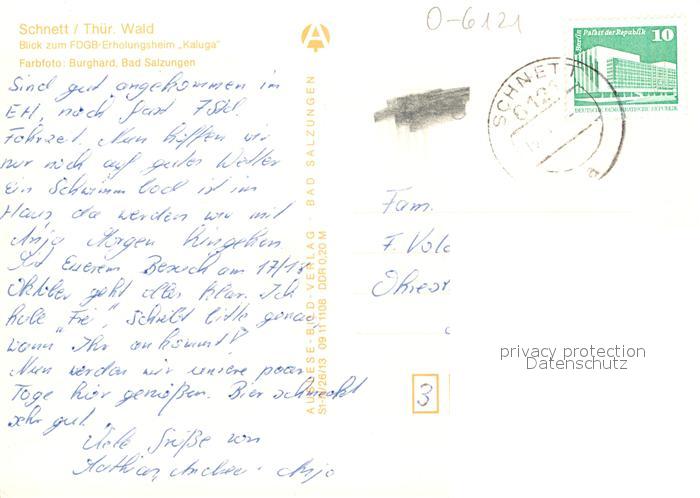 Schnett / Thür. Wald
Blick zum FDGB-Erholungsheim „Kaluga"
Farbfoto: Burghard, Bad Salzungen
Sind gut angekommen im
EH, nach fast 7 Std.
Fahrzeit. Nun hoffen wir
nur noch auf gutes Wetter
Ein Schwimmbad ist im
Haus, da werden wir mit
Anja Morgen hingehen.
Mit Euerem Besuch am 17/18
Oktober geht alles klar. Ich
habe „Frei", Schreibt bitte genau,
wann Ihr ankommt!
Nun werden wir unsere paar
Tage hier genießen. Bier schmeckt
sehr gut.
Viele Grüße von
Andrea Anja
AUSLESE-BILD-VERLAG · BAD SALZUNGEN
09 11 1108 DDR 0,20 M
O-6121
SCHNETT
6121
a
Berlin Palast der Republik
10
DEUTSCHE DEMOKRATISCHE REPUBLIK
Fam.
F.
3
privacy protection
Datenschutz